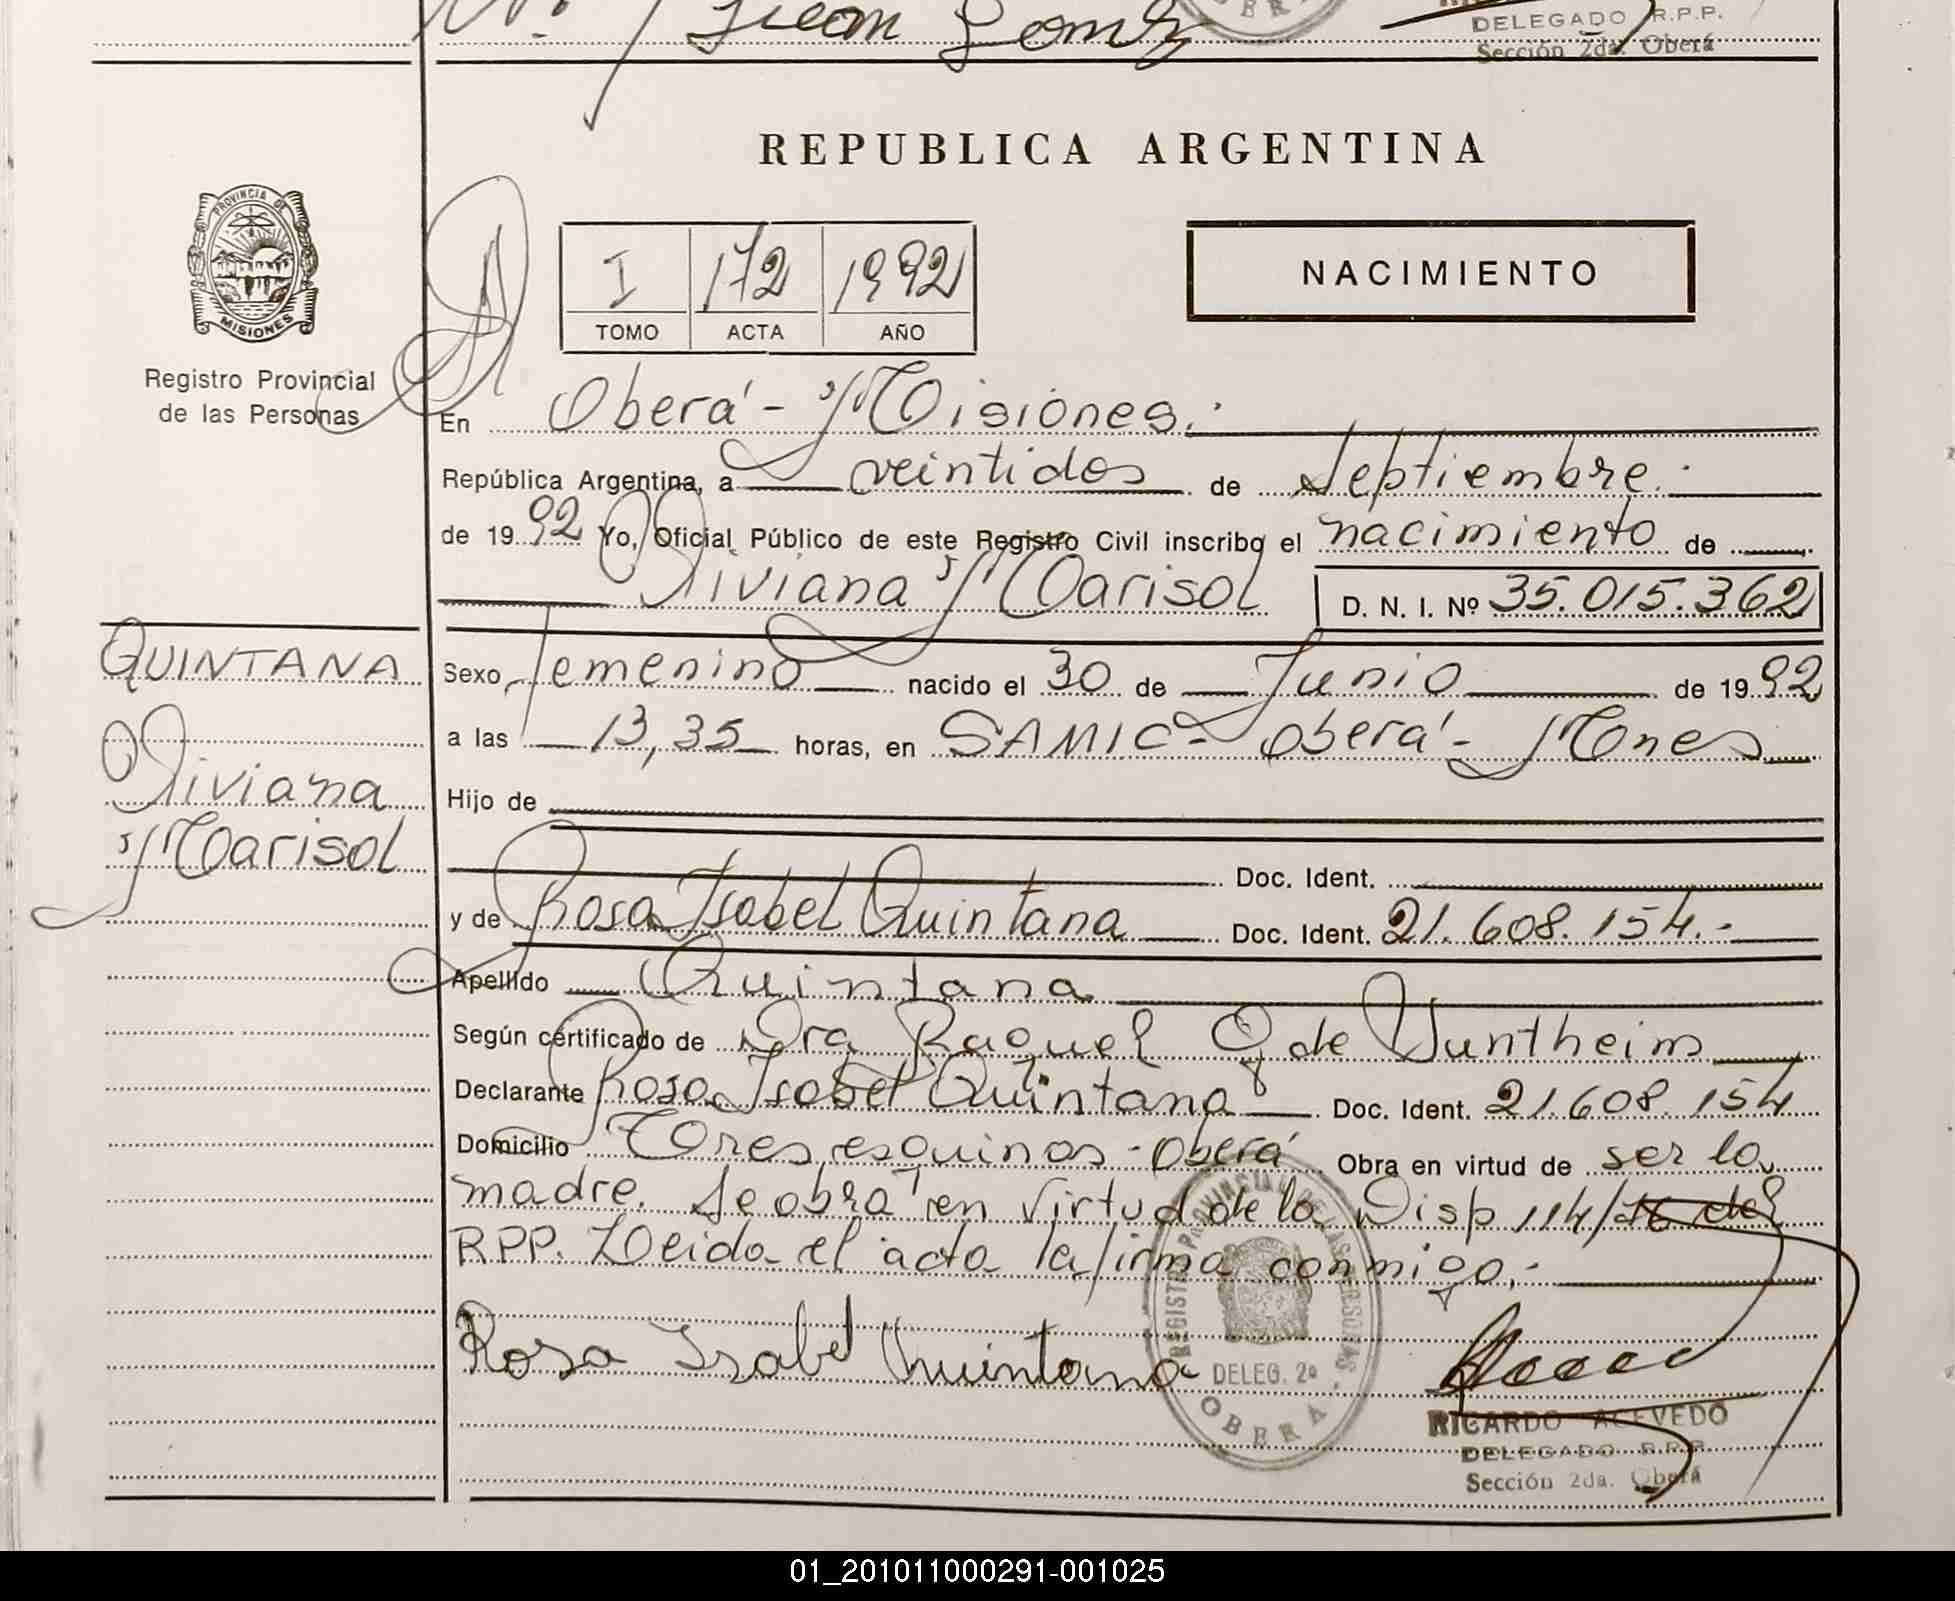 Juan Gomez
DELEGADO R.P.P.
Sección 2da. Oberá
PROVINCIA DE
MISIONES
Registro Provincial
de las Personas
REPUBLICA ARGENTINA
I 172 1992
TOMO ACTA AÑO
NACIMIENTO
En Oberá - Misiones.
República Argentina, a veintidos de Septiembre.
de 1992 Yo, Oficial Público de este Registro Civil inscribo el nacimiento de
Viviana Marisol D. N. I. Nº 35.015.362
QUINTANA
Viviana
Marisol
Sexo femenino nacido el 30 de Junio de 1992
a las 13,35 horas, en SAMIC - Oberá - Mnes
Hijo de
Doc. Ident.
y de Rosa Isabel Quintana Doc. Ident. 21.608.154.-
Apellido Quintana
Según certificado de Dra Raquel Q de Vuntheim
Declarante Rosa Isabel Quintana Doc. Ident. 21.608.154
Domicilio Tres esquinas - Oberá Obra en virtud de ser la
madre. Se obra en virtud de la Disp 114/76 del
RPP. Leida el acta la firma conmigo.-
Rosa Isabel Quintana
REGISTRO PROVINCIAL DE LAS PERSONAS
DELEG. 2º
OBERÁ
RICARDO ACEVEDO
DELEGADO R.P.P.
Sección 2da. Oberá
01_201011000291-001025